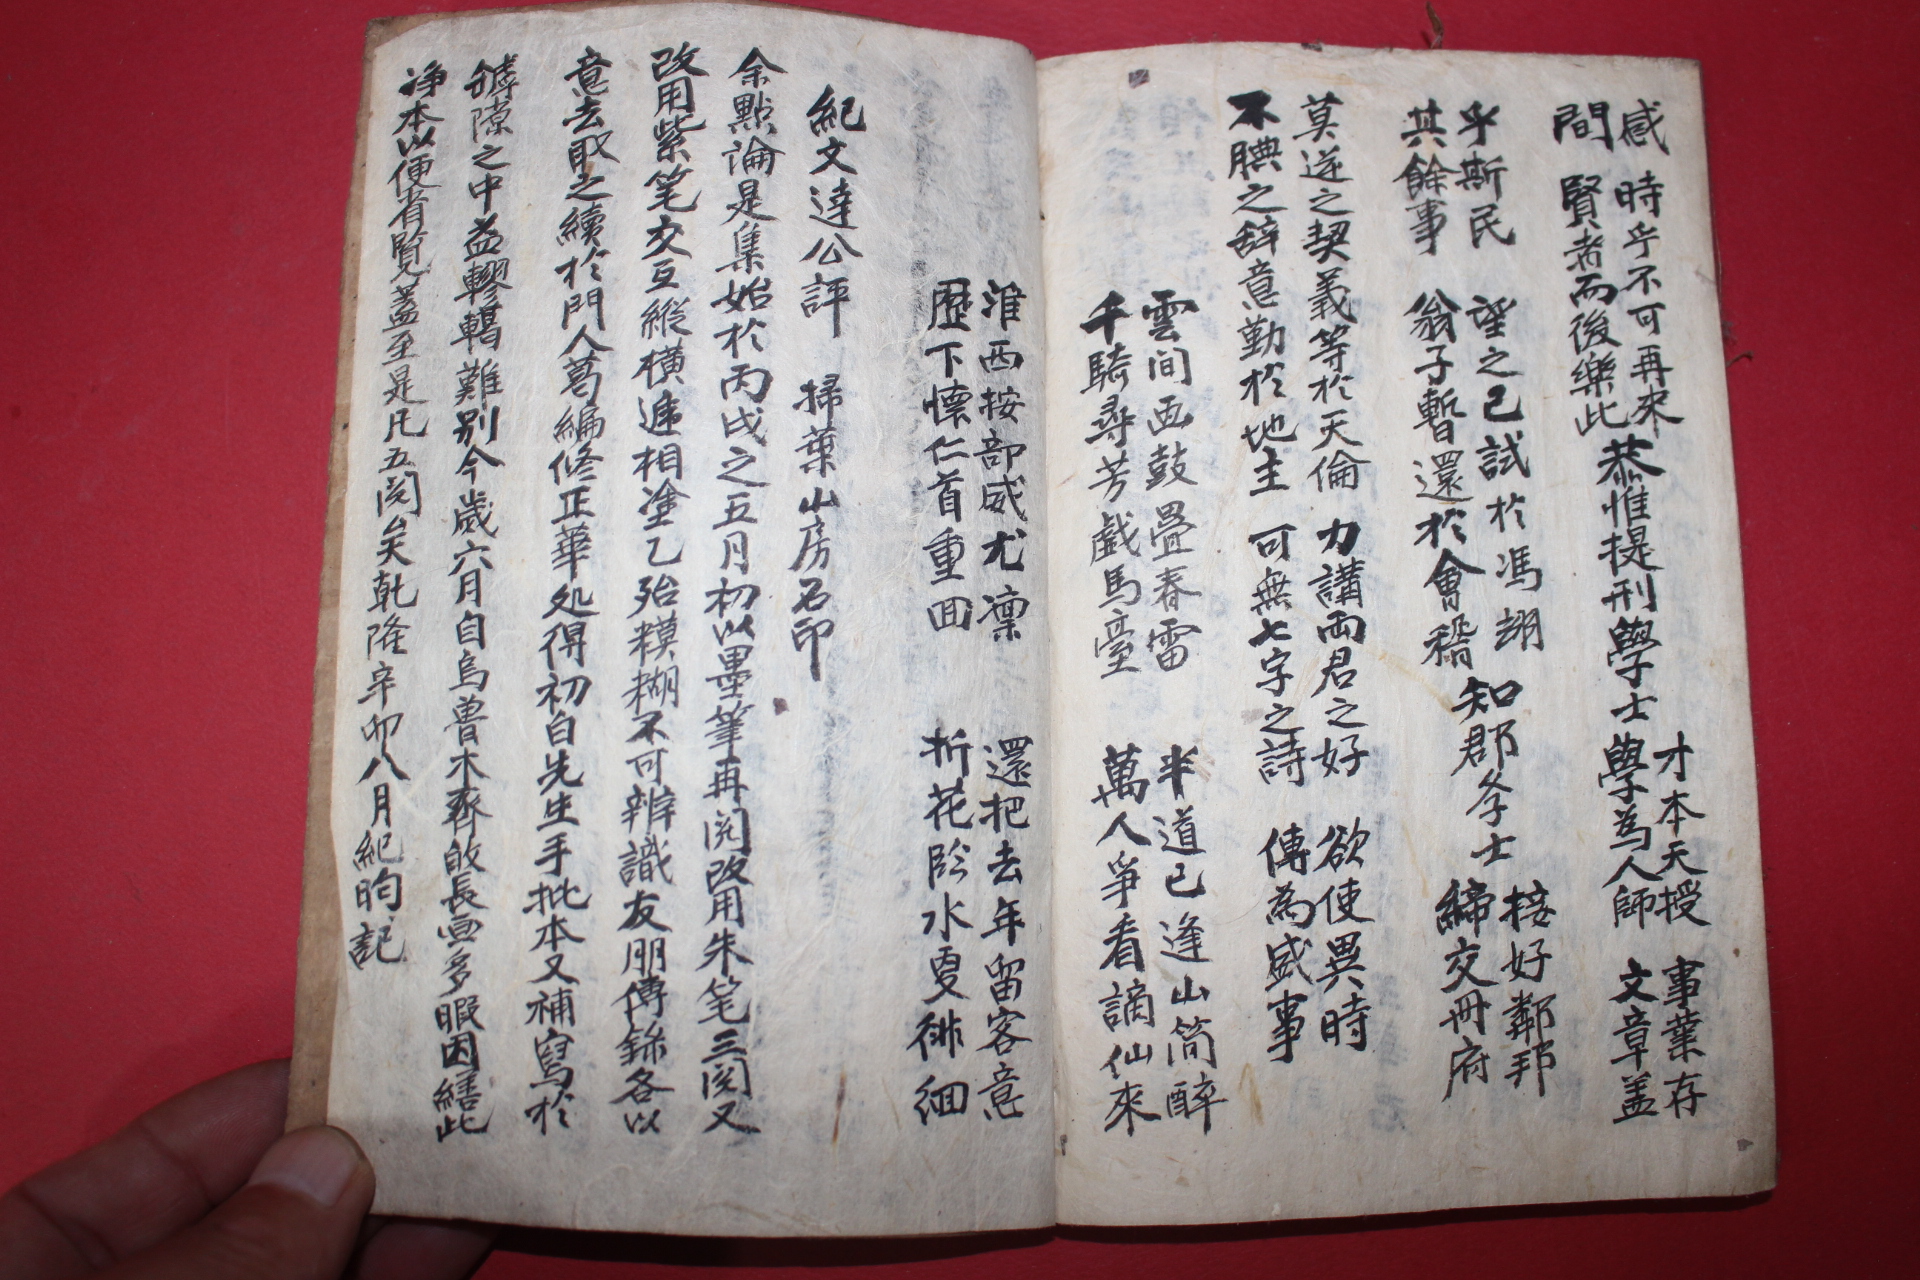 感 時乎不可再來
間 賢者而後樂此 恭惟提刑學士 才本天授 事業存
學為人師 文章盖
乎斯民 望之已試於馮翊
其餘事 翁子暫還於會稽 知郡學士 接好鄰邦
締交冊府
莫逆之契義等於天倫 力講兩君之好 欲使異時
不腆之辞意勤於地主 可無七字之詩 傳為盛事
雲间西鼓疊春雷 半道已逢山简醉
千騎尋芳戲馬臺 萬人爭看謫仙來
淮西按部威尤凛 還把去年留客意
歷下懐仁首重回 折花臨水更徘徊
紀文達公評 掃葉山房石印
余點論是集始於丙戌之五月初以墨筆再阅改用朱笔三阅又
改用紫笔交互縱横遞相塗乙殆糢糊不可辨識友朋傳錄各以
意去取之續於門人葛編修正華処得初白先生手批本又補寫於
罅隙之中益轇轕難別今歲六月自烏魯木齊啟長画多暇因繕此
净本以便省覧盖至是凡五阅矣乾隆辛卯八月紀昀記